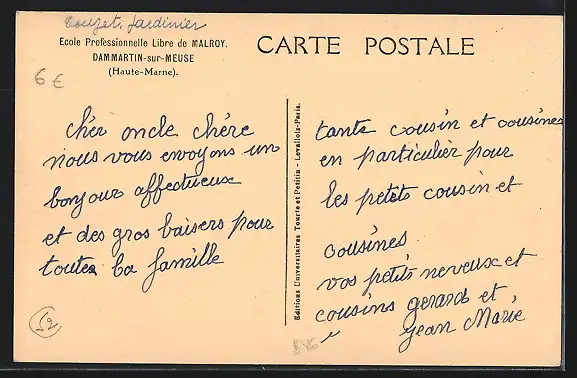 Touzet, Jardinier
Ecole Professionnelle Libre de MALROY.
DAMMARTIN-sur-MEUSE
(Haute-Marne).
CARTE POSTALE
6 €
Cher oncle chère
nous vous envoyons un
bonjour affectueux
et des gros baisers pour
toutes la famille
52
Editions Universitaires Tourte et Petitin - Levallois-Paris.
tante cousin et cousines
en particulier pour
les petits cousin et
cousines
vos petits neveux et
cousins gerard et
jean Marie